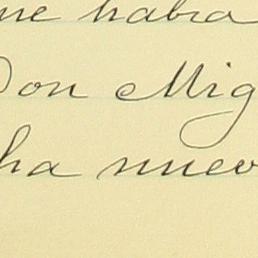 me habia
Don Mig
ha nuev